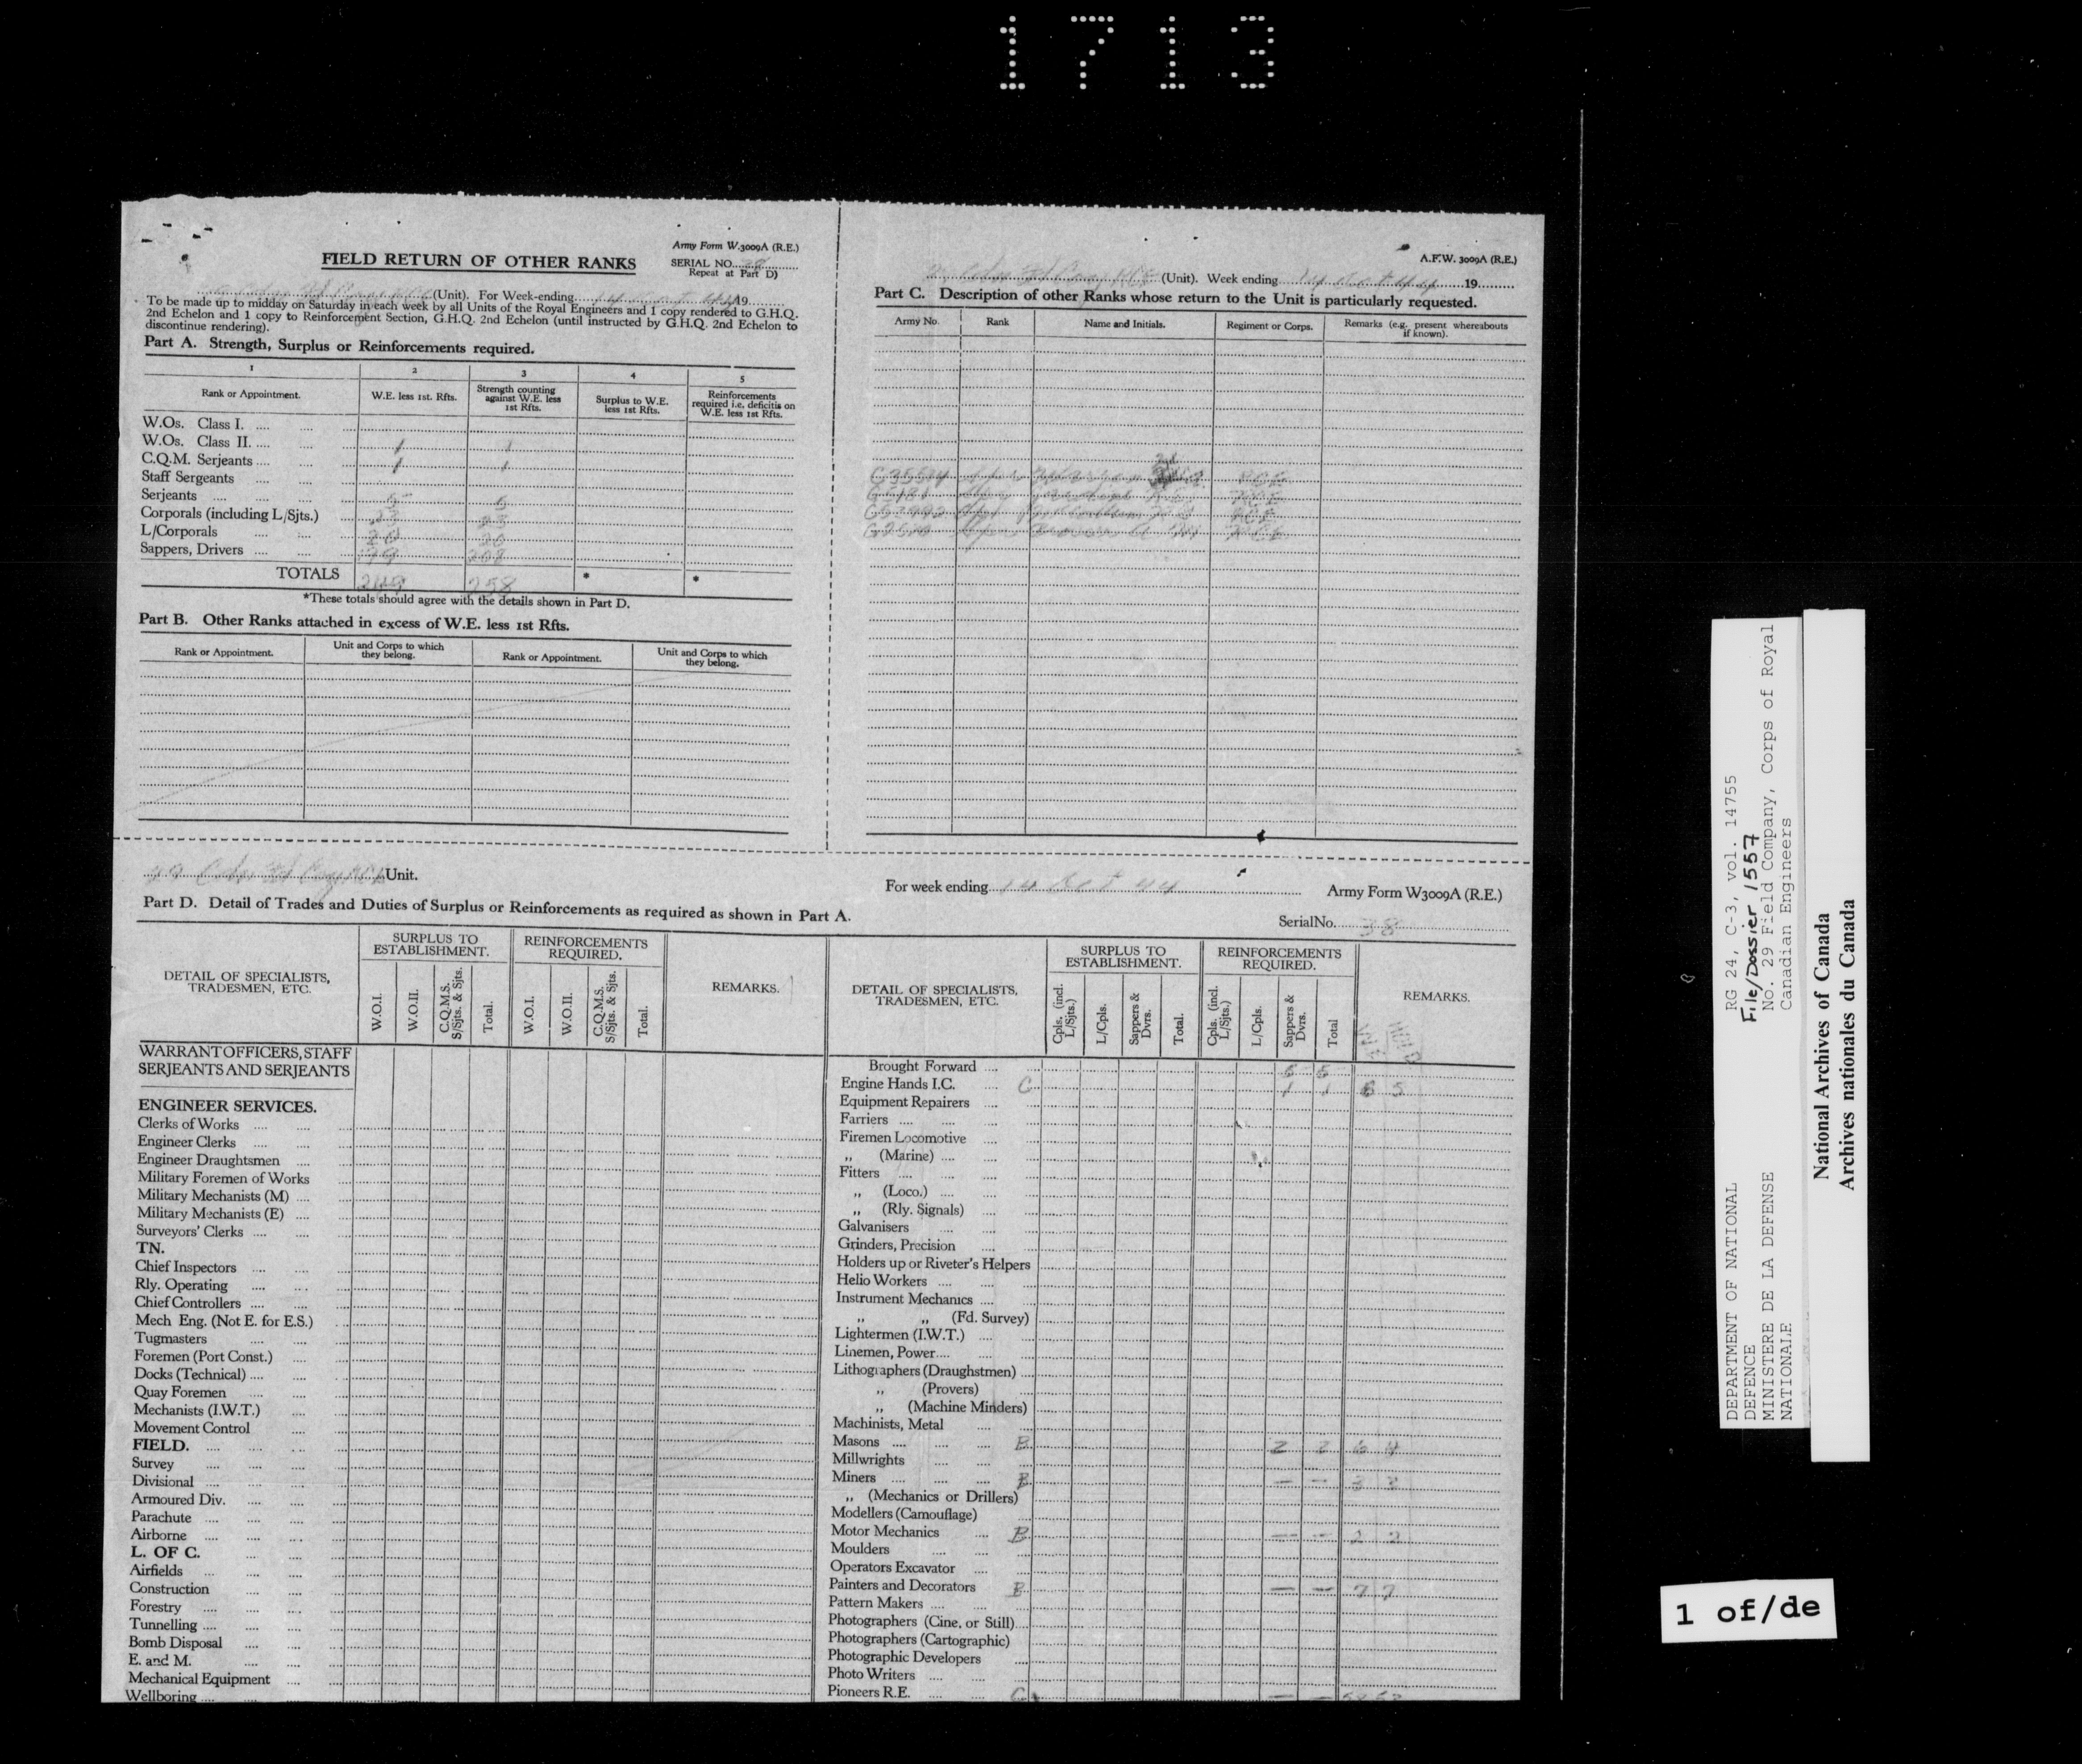 1713
Army Form W.3009A (R.E.)
FIELD RETURN OF OTHER RANKS
SERIAL NO. 38
Repeat at Part D)
(Unit). For Week-ending 19
To be made up to midday on Saturday in each week by all Units of the Royal Engineers and 1 copy rendered to G.H.Q.
2nd Echelon and 1 copy to Reinforcement Section, G.H.Q. 2nd Echelon (until instructed by G.H.Q. 2nd Echelon to
discontinue rendering).
Part A. Strength, Surplus or Reinforcements required.
1 2 3 4 5
Rank or Appointment. W.E. less 1st. Rfts. Strength counting against W.E. less 1st Rfts. Surplus to W.E. less 1st Rfts. Reinforcements required i.e. deficitis on W.E. less 1st Rfts.
W.Os. Class I.
W.Os. Class II. 1 1
C.Q.M. Serjeants 1 1
Staff Sergeants
Serjeants 5 5
Corporals (including L/Sjts.) 23 23
L/Corporals 20 20
Sappers, Drivers 208
TOTALS 249 258 * *
*These totals should agree with the details shown in Part D.
Part B. Other Ranks attached in excess of W.E. less 1st Rfts.
Rank or Appointment. Unit and Corps to which they belong. Rank or Appointment. Unit and Corps to which they belong.
A.F.W. 3009A (R.E.)
(Unit). Week ending 14 Oct 44 19
Part C. Description of other Ranks whose return to the Unit is particularly requested.
Army No. Rank Name and Initials. Regiment or Corps. Remarks (e.g. present whereabouts if known).
RCE
RCE
RCE
RCE
29 Cdn Fd Coy RCE Unit.
For week ending 14 Oct 44 Army Form W3009A (R.E.)
Part D. Detail of Trades and Duties of Surplus or Reinforcements as required as shown in Part A.
Serial No. 38
DETAIL OF SPECIALISTS, TRADESMEN, ETC. SURPLUS TO ESTABLISHMENT. REINFORCEMENTS REQUIRED. REMARKS.
W.O.I. W.O.II. C.Q.M.S. S/Sjts. & Sjts. Total. W.O.I. W.O.II. C.Q.M.S. S/Sjts. & Sjts. Total.
WARRANT OFFICERS, STAFF
SERJEANTS AND SERJEANTS
ENGINEER SERVICES.
Clerks of Works
Engineer Clerks
Engineer Draughtsmen
Military Foremen of Works
Military Mechanists (M)
Military Mechanists (E)
Surveyors' Clerks
TN.
Chief Inspectors
Rly. Operating
Chief Controllers
Mech Eng. (Not E. for E.S.)
Tugmasters
Foremen (Port Const.)
Docks (Technical)
Quay Foremen
Mechanists (I.W.T.)
Movement Control
FIELD.
Survey
Divisional
Armoured Div.
Parachute
Airborne
L. OF C.
Airfields
Construction
Forestry
Tunnelling
Bomb Disposal
E. and M.
Mechanical Equipment
Wellboring
DETAIL OF SPECIALISTS, TRADESMEN, ETC. SURPLUS TO ESTABLISHMENT. REINFORCEMENTS REQUIRED. REMARKS.
Cpls. (incl. L/Sjts.) L/Cpls. Sappers & Dvrs. Total. Cpls. (incl. L/Sjts.) L/Cpls. Sappers & Dvrs. Total
Brought Forward 5 5
Engine Hands I.C. C 1 1 6 5
Equipment Repairers
Farriers
Firemen Locomotive
,, (Marine)
Fitters
,, (Loco.)
,, (Rly. Signals)
Galvanisers
Grinders, Precision
Holders up or Riveter's Helpers
Helio Workers
Instrument Mechanics
,, ,, (Fd. Survey)
Lightermen (I.W.T.)
Linemen, Power
Lithographers (Draughstmen)
,, (Provers)
,, (Machine Minders)
Machinists, Metal
Masons B 2 2 6 4
Millwrights
Miners B — — 3 3
,, (Mechanics or Drillers)
Modellers (Camouflage)
Motor Mechanics B — — 2 2
Moulders
Operators Excavator
Painters and Decorators B — — 7 7
Pattern Makers
Photographers (Cine, or Still)
Photographers (Cartographic)
Photographic Developers
Photo Writers
Pioneers R.E. C — —
RG 24, C-3, vol. 14755
File/Dossier 1557
No. 29 Field Company, Corps of Royal
Canadian Engineers
DEPARTMENT OF NATIONAL
DEFENCE
MINISTERE DE LA DEFENSE
NATIONALE
National Archives of Canada
Archives nationales du Canada
1 of/de